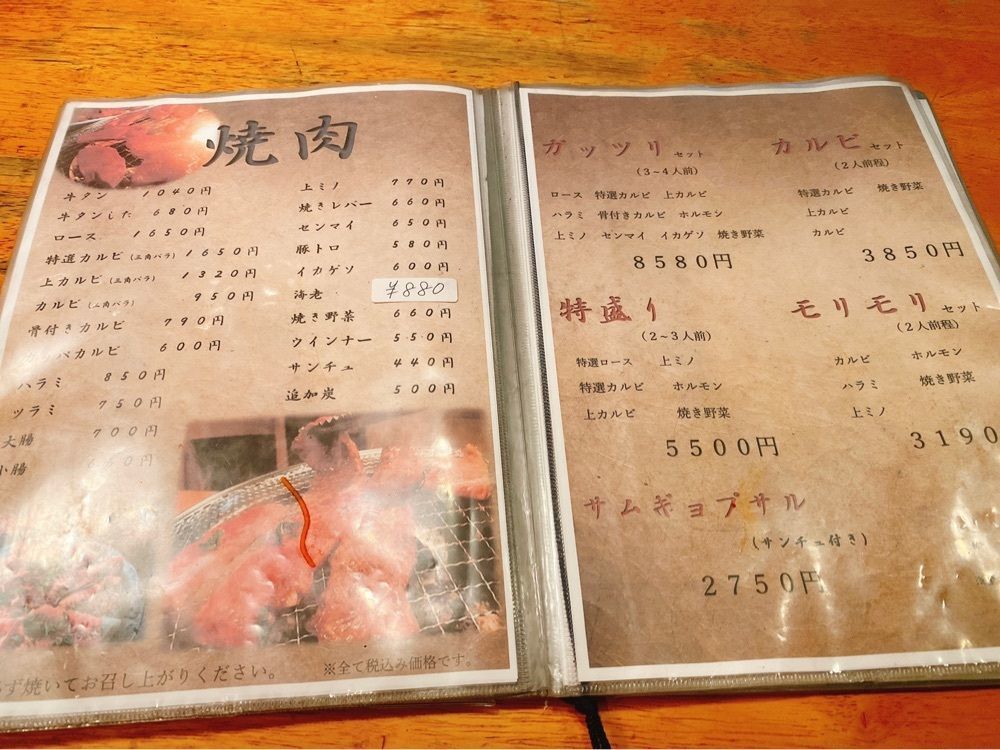 焼肉
牛タン 1040円
牛タンした 680円
ロース 1650円
特選カルビ(三角バラ) 1650円
上カルビ(三角バラ) 1320円
カルビ(三角バラ) 950円
骨付きカルビ 790円
バカルビ 600円
ハラミ 850円
ツラミ 750円
大腸 700円
小腸 円
上ミノ 770円
焼きレバー 660円
センマイ 650円
豚トロ 580円
イカゲソ 600円
海老 ¥880
焼き野菜 660円
ウインナー 550円
サンチュ 440円
追加炭 500円
ず焼いてお召し上がりください。
※全て税込み価格です。
ガッツリセット
(3~4人前)
ロース 特選カルビ 上カルビ
ハラミ 骨付きカルビ ホルモン
上ミノ センマイ イカゲソ 焼き野菜
8580円
カルビセット
(2人前程)
特選カルビ 焼き野菜
上カルビ
カルビ
3850円
特盛り
(2~3人前)
特選ロース 上ミノ
特選カルビ ホルモン
上カルビ 焼き野菜
5500円
モリモリセット
(2人前程)
カルビ ホルモン
ハラミ 焼き野菜
上ミノ
3190
サムギョプサル
(サンチュ付き)
2750円